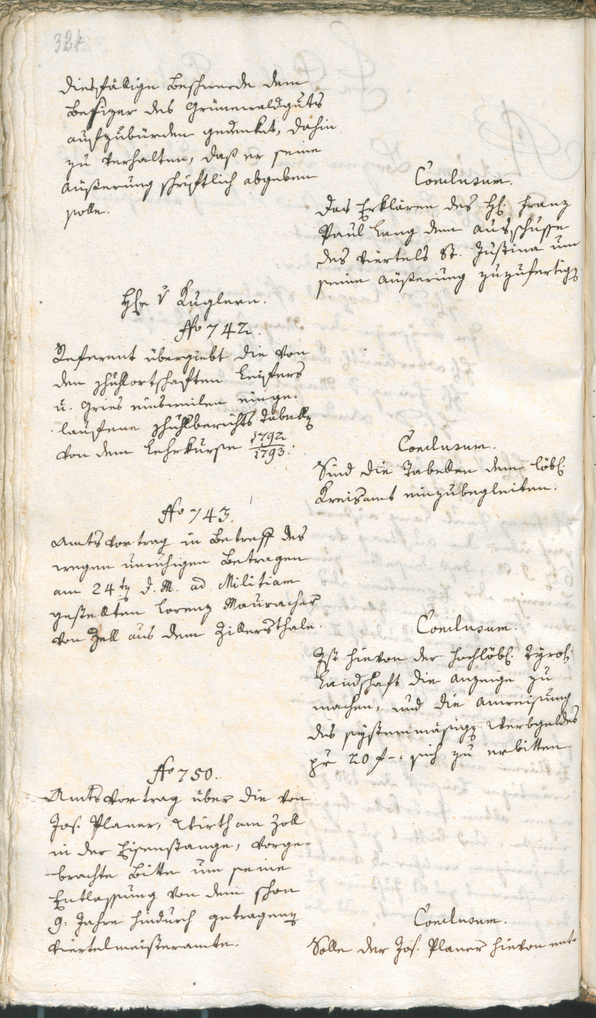 324
diesfällige Beschwerde dem
Besizer des Grünewaldguts
aufzubürden gedenket, dahin
zu verhalten, daß er seine
Äußerung schriftlich abgeben
solle.
Conclusum.
Das Erklären des H. Franz
Paul Lang dem Ausschuße
des Viertels St. Justina um
seine Äußerung zuzufertig
H. v Kuglern.
No 742.
Referent übergiebt die von
den Schulortschaften Leifers
u. Gries einsweilen einge-
laufene Schulberichts Tabell
von dem Lehrkurse 1792/1793.
Conclusum.
Sind die Tabellen dem löbl.
Kreisamt einzubegleiten.
No 743.
Amtsvortrag in Betreff des
wegen unruhigen Betragen
am 24ten d. M. ad Militiam
gestellten Lorenz Mauracher
von Zell aus dem Zillersthale.
Conclusum.
Ist hievon der hochlöbl. Tyrol.
Landschaft die Anzeige zu
machen, und die Anweisung
des systemmäsig Werbgeldes
pr 20 f. sich zu erbitten
No 750.
Amtsvortrag über die von
Jos. Planer, Wirth am Zoll
in der Eisenstange, vorge-
brachte Bitte um seine
Entlassung von dem schon
9. Jahre hindurch getragen
Viertelmeisteramte.
Conclusum.
Solle der Jos. Planer hievon ent-